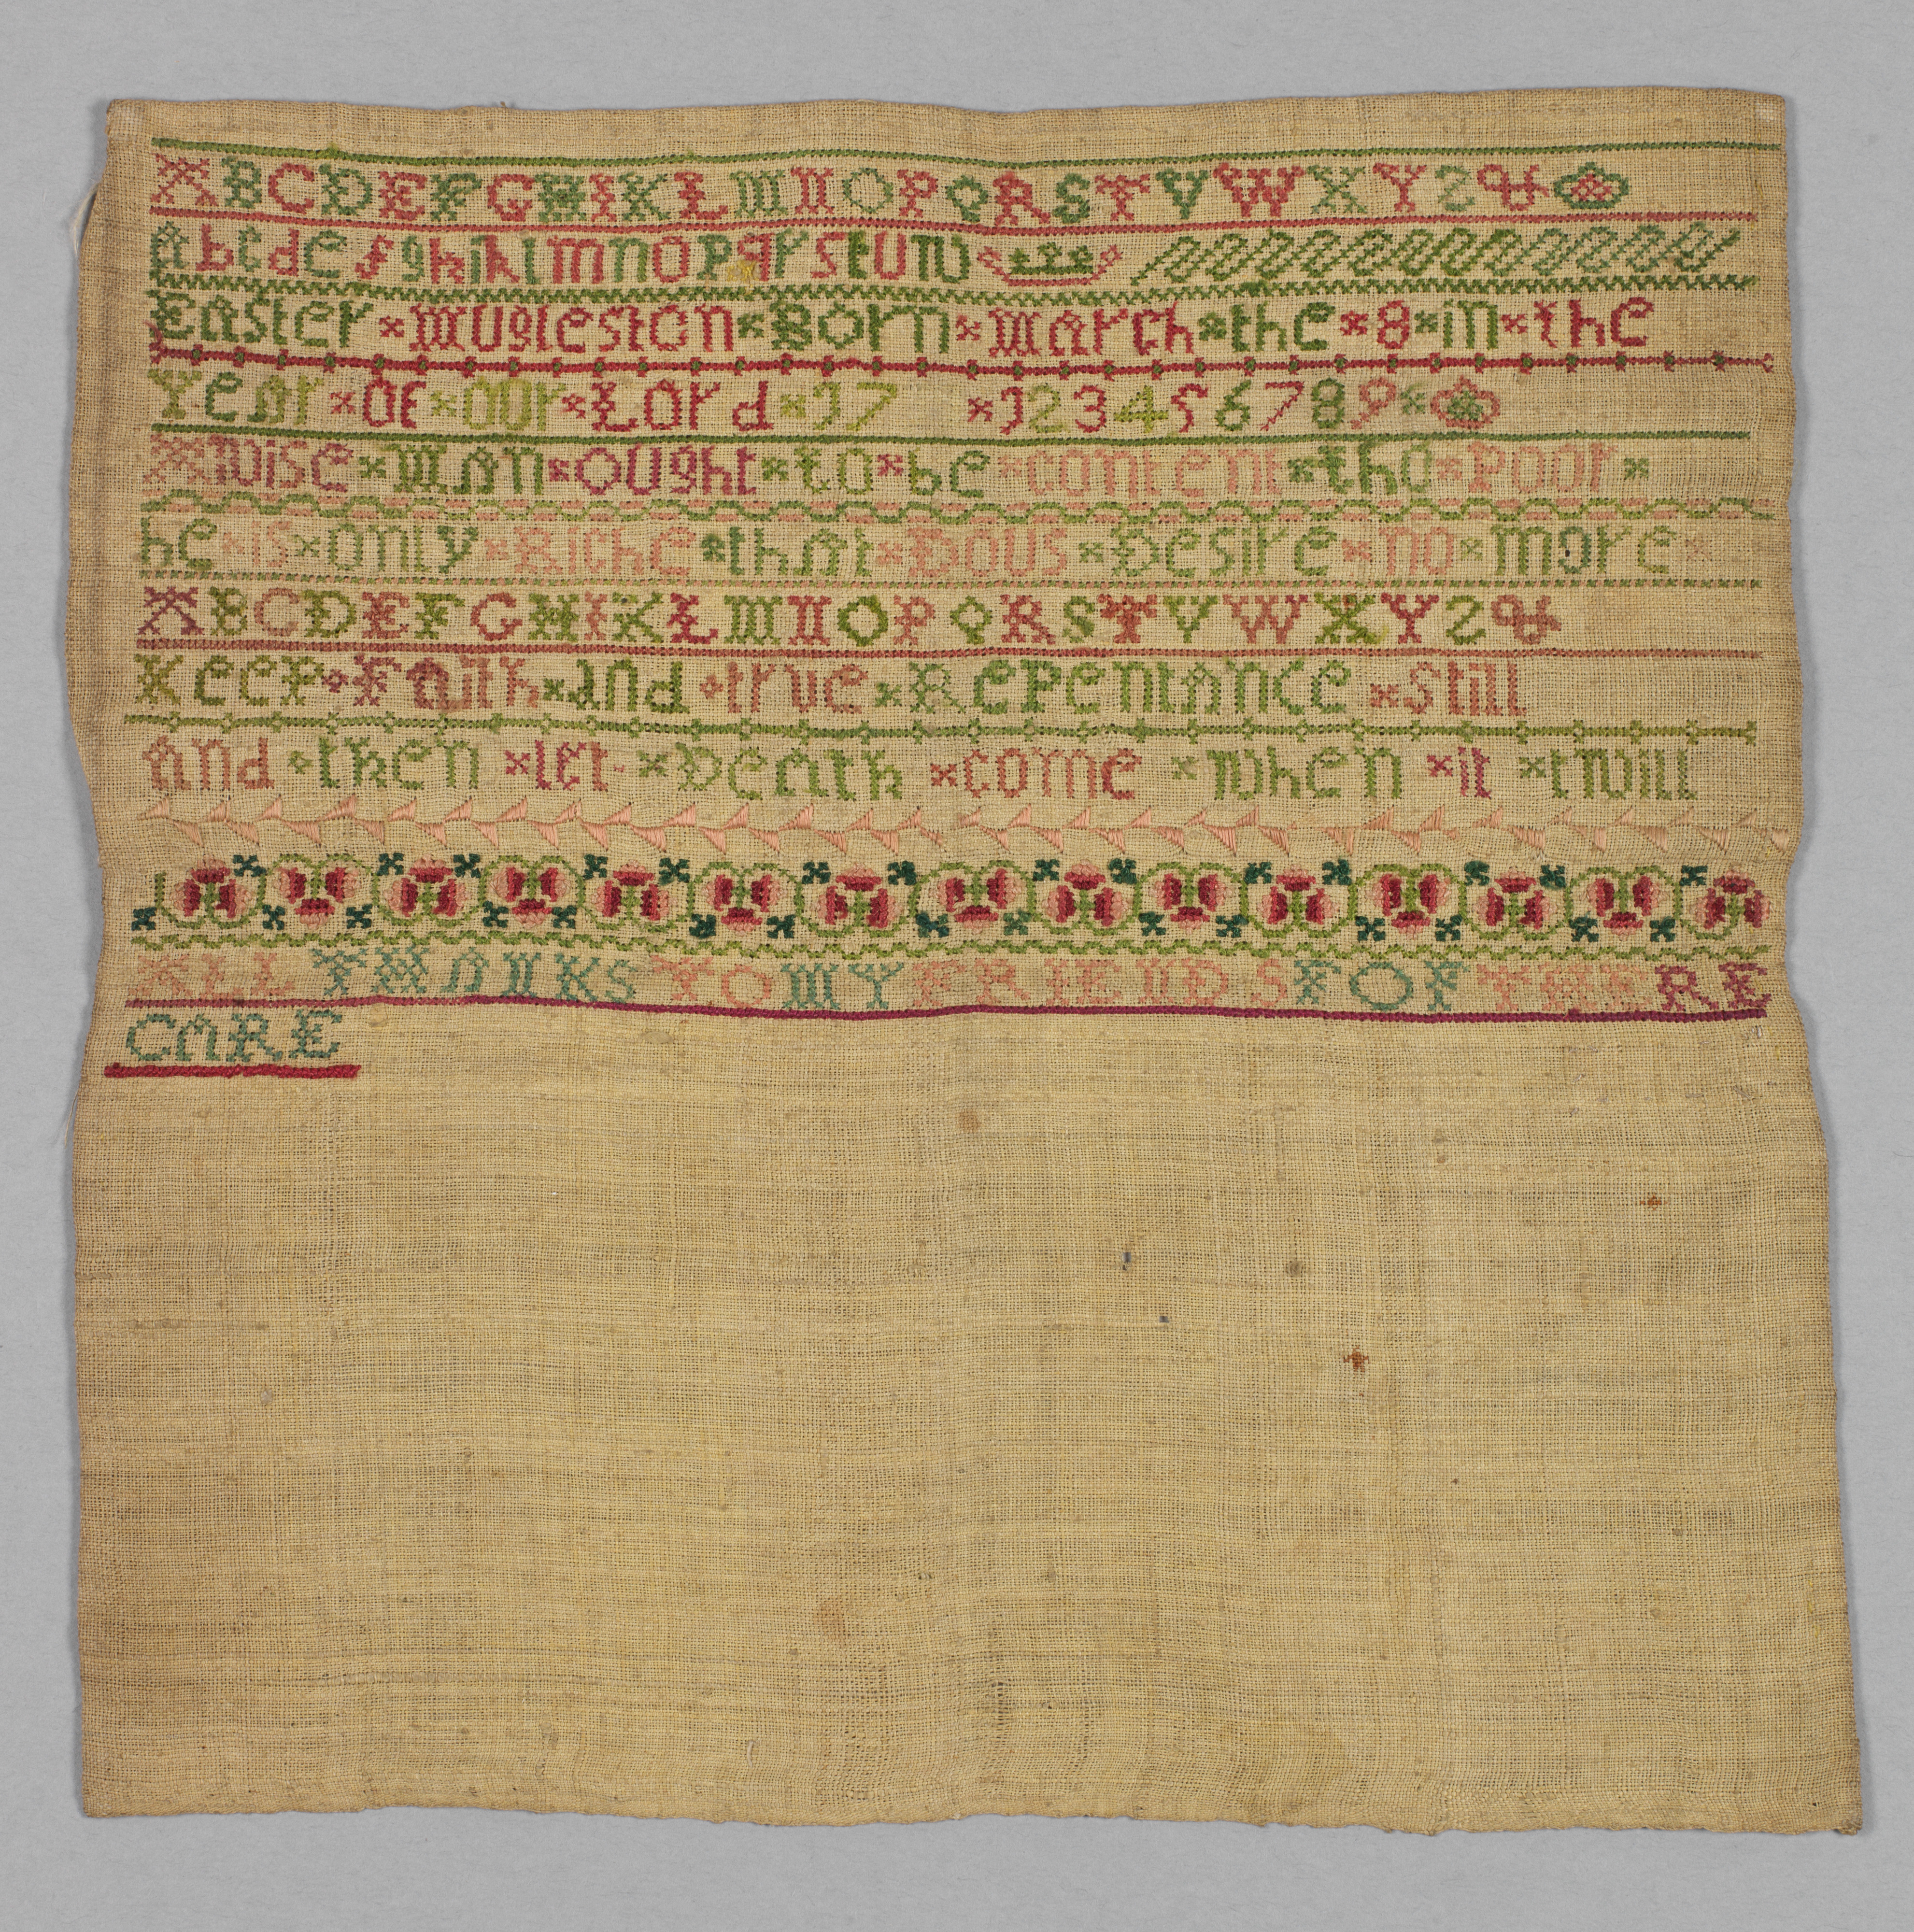 A B C D E F G H I K L M N O P Q R S T V W X Y Z &
A b c d e f g h i k l m n o p q r s t u w
Easter Mugleston Born March the 8 in the
Year of our Lord 17 1 2 3 4 5 6 7 8 9
A wise man ought to be content tho poor
he is only Riche that Dous Desire no more
A B C D E F G H I K L M N O P Q R S T V W X Y Z &
Keep Faith and true Repentance still
And then let Death come when it twill
ALL THANKS TO MY FRIENDS FOF THERE
CARE